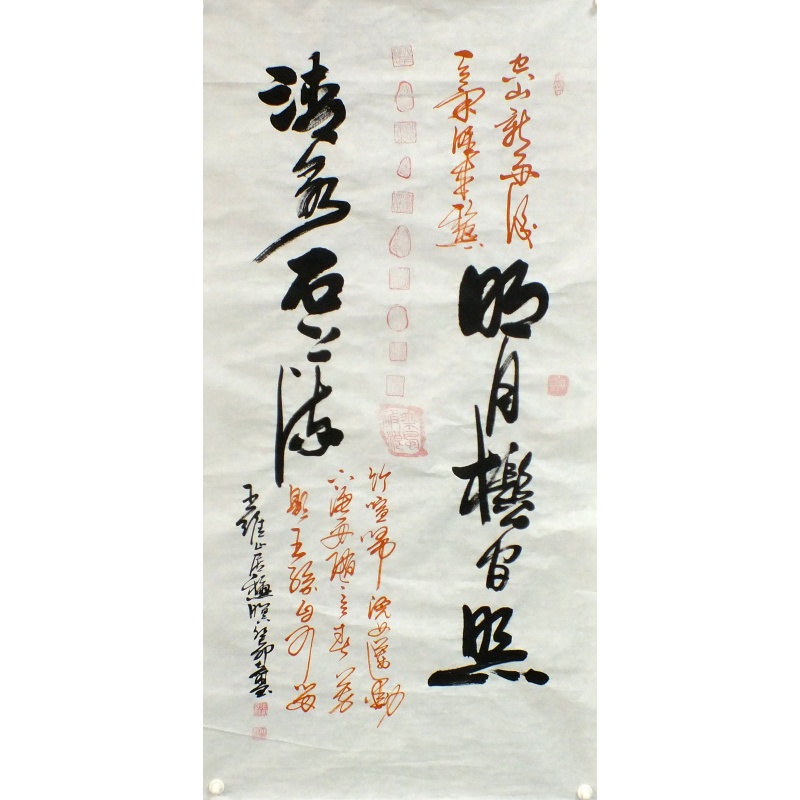 空山新雨後
天氣晚來龝
明月松間照
清泉石上流
竹喧歸浣女蓮動
下漁舟隨意春芳
歇王孫自可留
王維山居龝暝癸卯